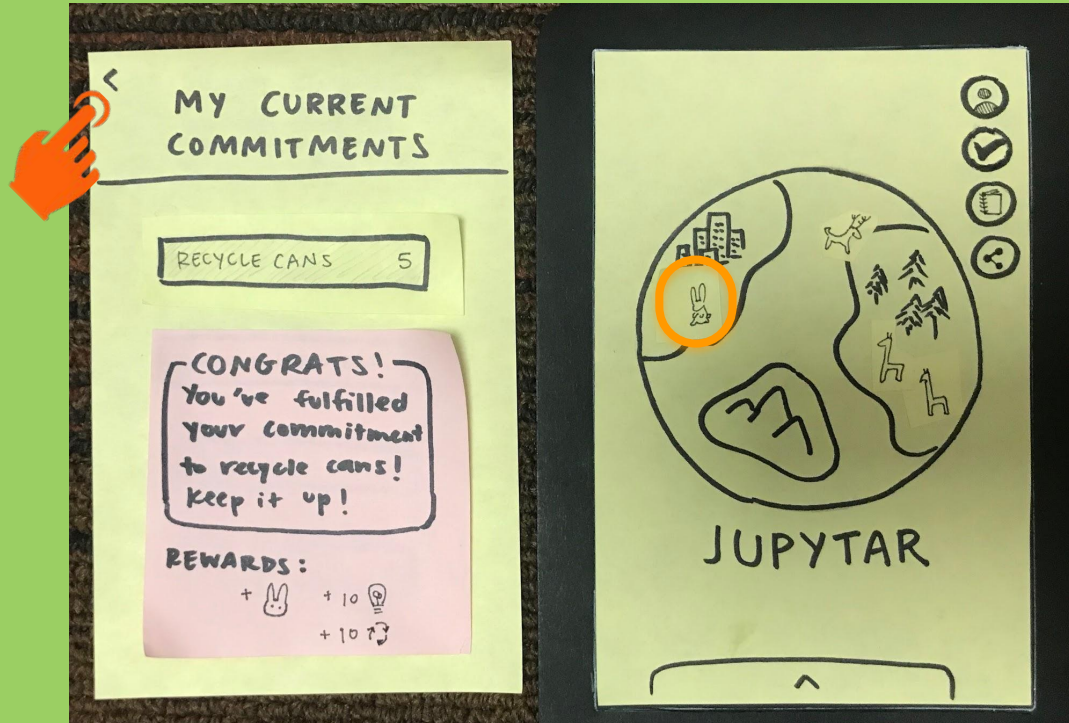 MY CURRENT
COMMITMENTS
RECYCLE CANS 5
CONGRATS!
You've fulfilled
your commitment
to recycle cans!
Keep it up!
REWARDS:
+ + 10
+ 10
JUPYTAR